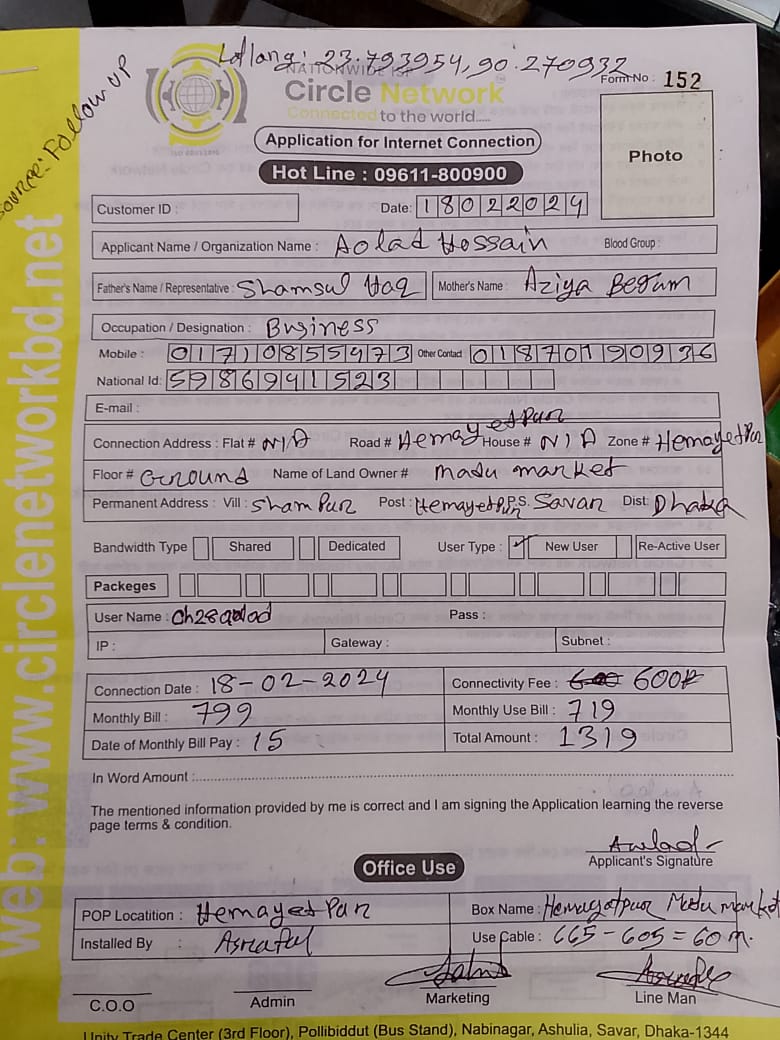 Lat lang: 23.793954, 90.270932
Source: Follow UP
NATIONWIDE ISP
Form No : 152
Circle Network
Connected to the world.....
ISO 9001:2015
Application for Internet Connection
Photo
Hot Line : 09611-800900
Customer ID :
Date: 18022024
Applicant Name / Organization Name : Aolad Hossain Blood Group :
Father's Name / Representative : Shamsul Haq Mother's Name : Aziya Begum
Occupation / Designation : Business
Mobile : 01710855473 Other Contact 01870190936
National Id: 5986941523
E-mail :
Connection Address : Flat # N/A Road # HemayetPur House # N/A Zone # HemayetPur
Floor # Ground Name of Land Owner # Madu market
Permanent Address : Vill : ShamPur Post : HemayetPur P.S. Savar Dist: Dhaka
Bandwidth Type Shared Dedicated User Type : ✓ New User Re-Active User
Packeges
User Name : Ch28aolad Pass :
IP : Gateway : Subnet :
Connection Date : 18-02-2024 Connectivity Fee : 600
Monthly Bill : 799 Monthly Use Bill : 719
Date of Monthly Bill Pay : 15 Total Amount : 1319
In Word Amount :
The mentioned information provided by me is correct and I am signing the Application learning the reverse
page terms & condition.
Awlad
Applicant's Signature
Office Use
POP Locatition : HemayetPur Box Name : Hemayetpur Madu market
Installed By : Asraful Use Cable : 665 - 605 = 60 m.
C.O.O Admin Marketing Line Man
Unity Trade Center (3rd Floor), Pollibiddut (Bus Stand), Nabinagar, Ashulia, Savar, Dhaka-1344
web: www.circlenetworkbd.net